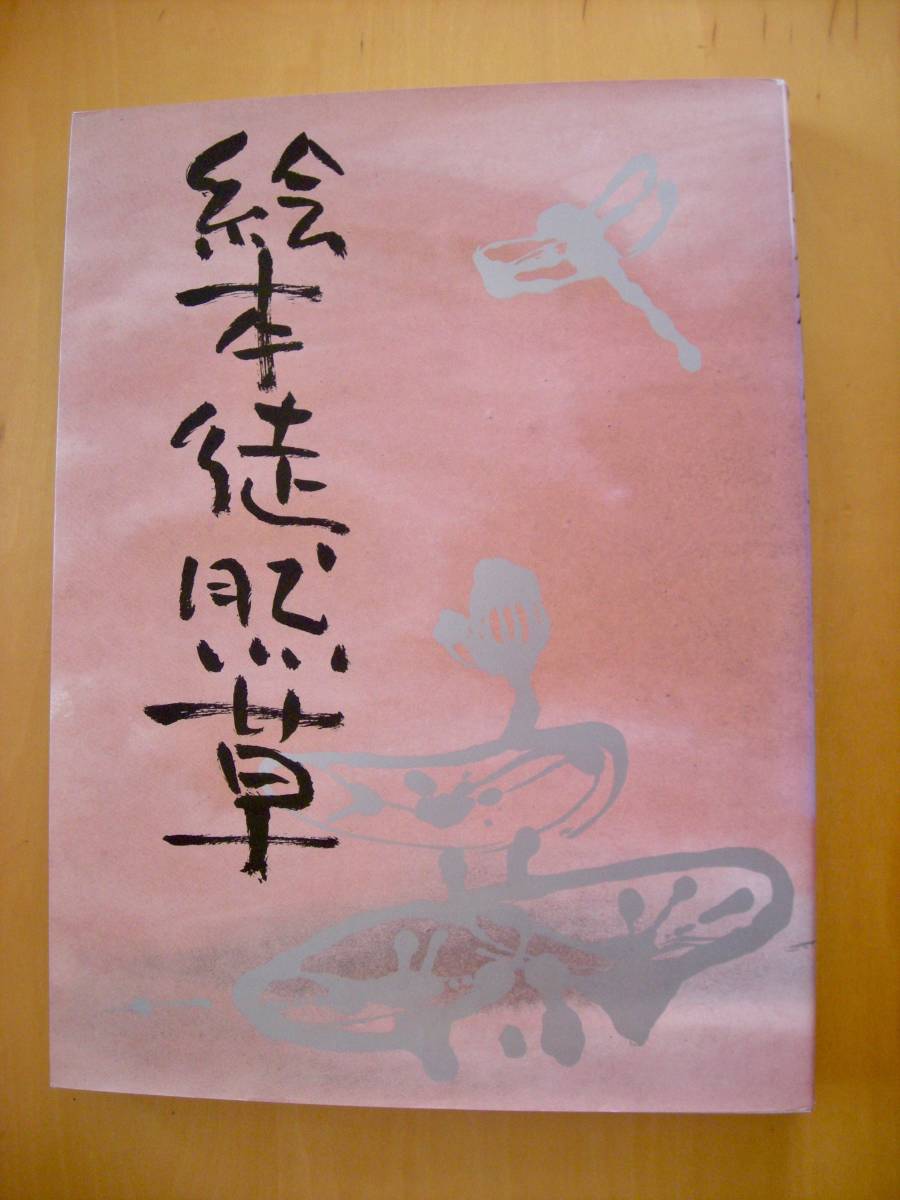 絵本徒然草